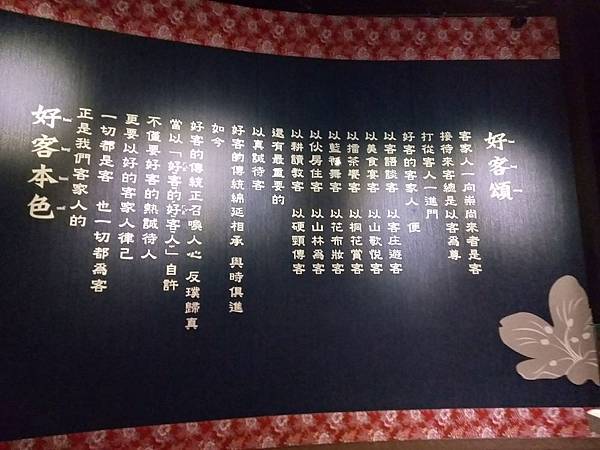 好客頌
客家人一向崇尚來者是客
接待來客總是以客為尊
打從客人一進門
好客的客家人 便
以客語談客 以客庄遊客
以美食宴客 以山歌悅客
以擂茶饗客 以桐花賞客
以藍衫舞客 以花布妝客
以伙房住客 以山林為客
以耕讀教客 以硬頸傳客
還有最重要的
以真誠待客
好客的傳統綿延相承 與時俱進
如今
好客的傳統正召喚人心 反璞歸真
當以「好客的好客人」自許
不僅要好客的熱誠待人
更要以好的客家人律己
一切都是客 也一切都為客
正是我們客家人的
好客本色